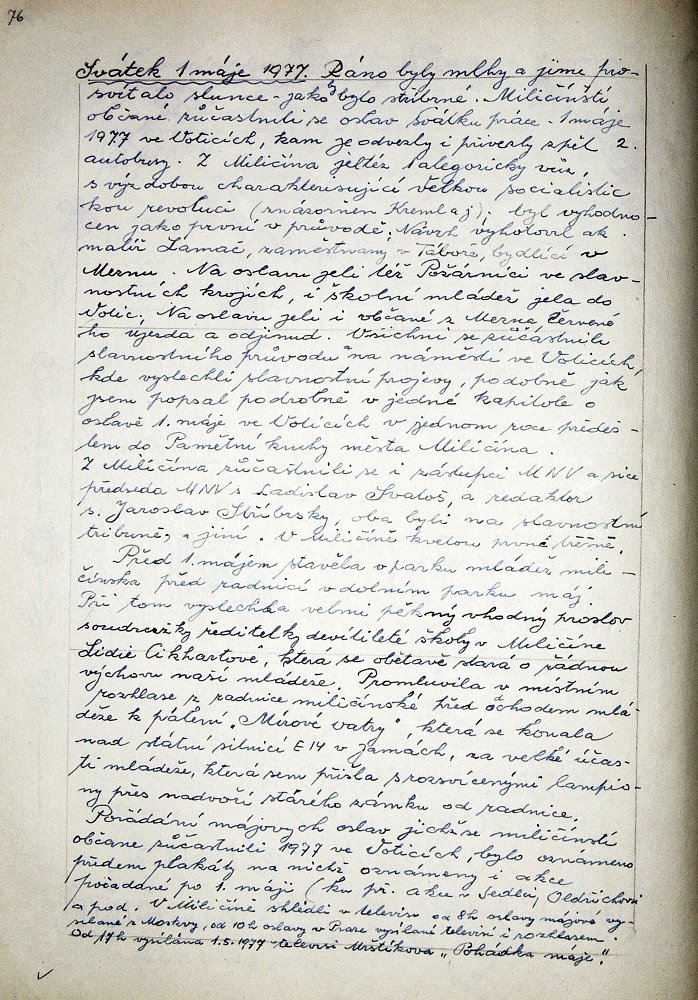 76
Svátek 1 máje 1977. Ráno byly mlhy a jime pro-
svítalo slunce - jako by bylo stříbrné. Miličínští
občané zúčastnili se oslav svátku práce - 1 máje
1977 ve Voticích, kam je odvezly i přivezly zpět 2.
autobusy. Z Miličína jel též 1 alegorický vůz,
s výzdobou charakterisující Velkou socialistic
kou revoluci (znázorněn Kreml aj); byl vyhodno-
cen jako první v průvodě; Návrh vyhotovil ak.
malíř Lamač, zaměstnaný v Táboře, bydlící v
Meznu. Na oslavu jeli též Požárníci ve slav-
nostních krojích, i školní mládež jela do
Votic. Na oslavu jeli i občané z Mezna, Červené
ho Újezda a odjinud. Všichni se zúčastnili
slavnostního průvodu na náměstí ve Voticích,
kde vyslechli slavnostní projevy, podobně jak
jsem popsal podrobně v jedné kapitole o
oslavě 1. máje ve Voticích v jednom roce předeš-
lém do Pamětní knihy města Miličína.
Z Miličína zúčastnili se i zástupci MNV a sice
předseda MNV s Ladislav Svatoš, a redaktor
s. Jaroslav Stříbrský, oba byli na slavnostní
tribuně, a jiní. V Miličíně kvetou prvné třešně.
Před 1. májem stavěla v parku mládež mili-
čínská před radnicí v dolním parku máj.
Při tom vyslechla velmi pěkný vhodný proslov
soudružky ředitelky devítileté školy v Miličíně
Lidie Cikhartové, která se obětavě stará o řádnou
výchovu naší mládeže. Promluvila v místním
rozhlase z radnice miličínské před odchodem mlá-
deže k pálení "Mírové vatry", která se konala
nad státní silnicí E14 v Jamách, za velké účas-
ti mládeže, která sem přišla s rozsvícenými lampio-
ny přes nádvoří starého zámku od radnice.
Pořádání májových oslav jichž se miličínští
občané zúčastnili 1977 ve Voticích, bylo oznameno
předem plakáty na nichž oznameny i akce
pořádané po 1. máji (ku př. akce v Sedlci,
a pod. V Miličíně shlédli v televisi od 8h oslavy májové vy-
sílané z Moskvy, od 10h oslavy v Praze vysílané televisí i rozhlasem.
Od 17h vysílána 1.5.1977 televisí Mrštíkova "Pohádka máje".